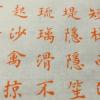 短棹
堤隐隐笙
琉璃滑不
起沙禽掠